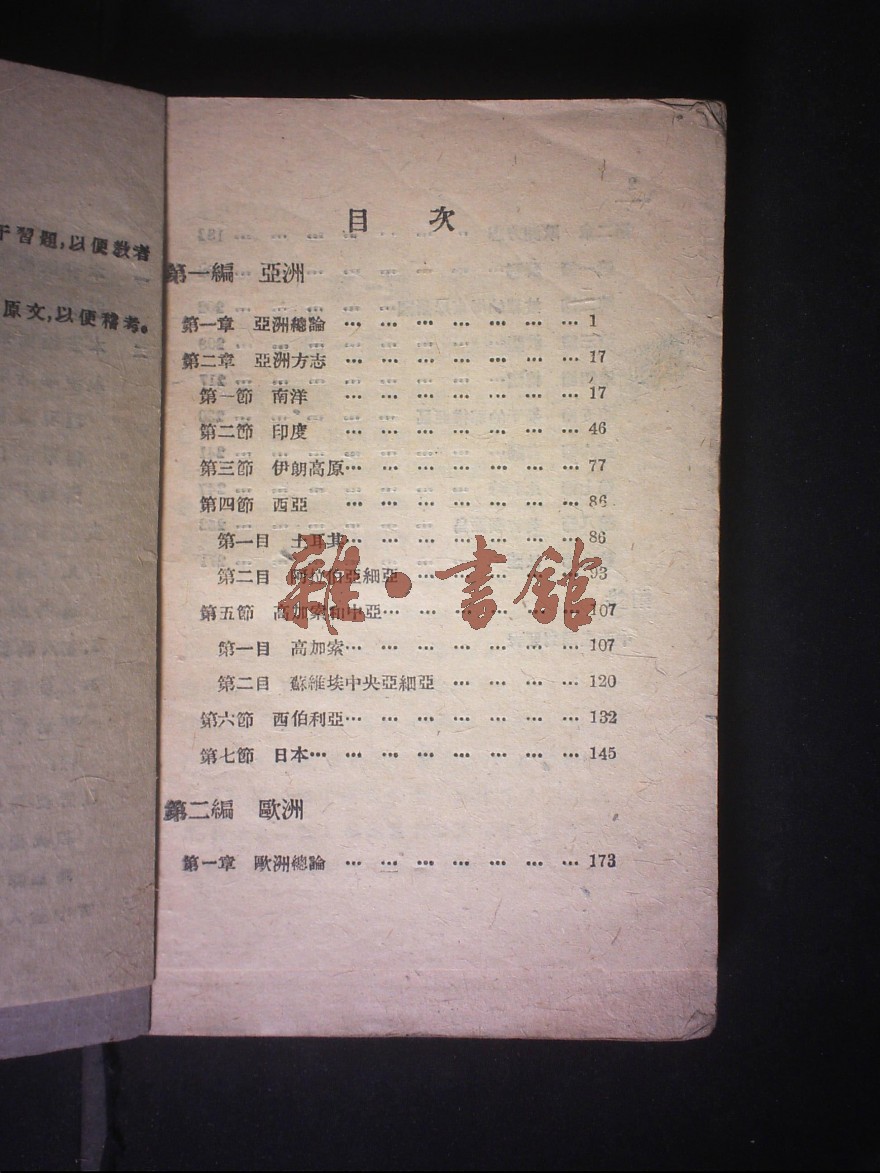 于習題,以便教者
原文,以便稽考。
目 次
第一編 亞洲
第一章 亞洲總論 … … … … … … … 1
第二章 亞洲方志 … … … … … … … 17
第一節 南洋 … … … … … … … 17
第二節 印度 … … … … … … … 46
第三節 伊朗高原… … … … … … … 77
第四節 西亞 … … … … … … … 86
第一目 土耳其… … … … … … … 86
第二目 阿拉伯亞細亞 … … … … … 93
第五節 高加索和中亞… … … … … … 107
第一目 高加索… … … … … … … 107
第二目 蘇維埃中央亞細亞 … … … … 120
第六節 西伯利亞… … … … … … … 132
第七節 日本… … … … … … … … 145
第二編 歐洲
第一章 歐洲總論 … … … … … … … 173
雜·書館